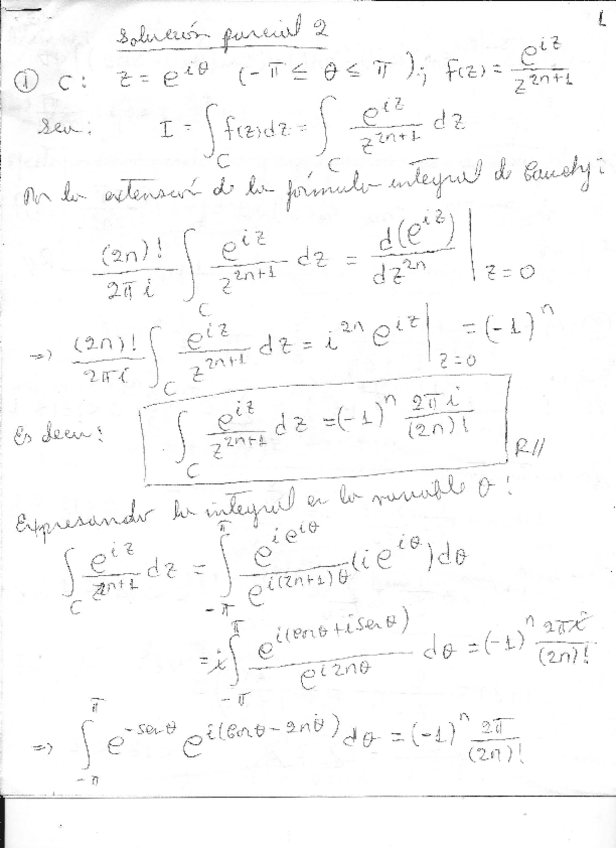 1
Solución parcial 2
① C: z = e^{iθ} (-π ≤ θ ≤ π); f(z) = e^{iz}/z^{2n+1}
Sea: I = ∫_C f(z)dz = ∫_C e^{iz}/z^{2n+1} dz
Por la extensión de la fórmula integral de Cauchy:
(2n)!/2πi ∫_C e^{iz}/z^{2n+1} dz = d(e^{iz})/dz^{2n} |_{z=0}
=> (2n)!/2πi ∫_C e^{iz}/z^{2n+1} dz = i^{2n} e^{iz} |_{z=0} = (-1)^n
Es decir: ∫_C e^{iz}/z^{2n+1} dz = (-1)^n 2πi/(2n)! R//
Expresando la integral en la variable θ:
∫_C e^{iz}/z^{2n+1} dz = ∫_{-π}^{π} e^{ie^{iθ}}/e^{i(2n+1)θ} (ie^{iθ})dθ
= i∫_{-π}^{π} e^{i(cosθ+isenθ)}/e^{i2nθ} dθ = (-1)^n 2πi/(2n)!
=> ∫_{-π}^{π} e^{-senθ} e^{i(cosθ-2nθ)} dθ = (-1)^n 2π/(2n)!